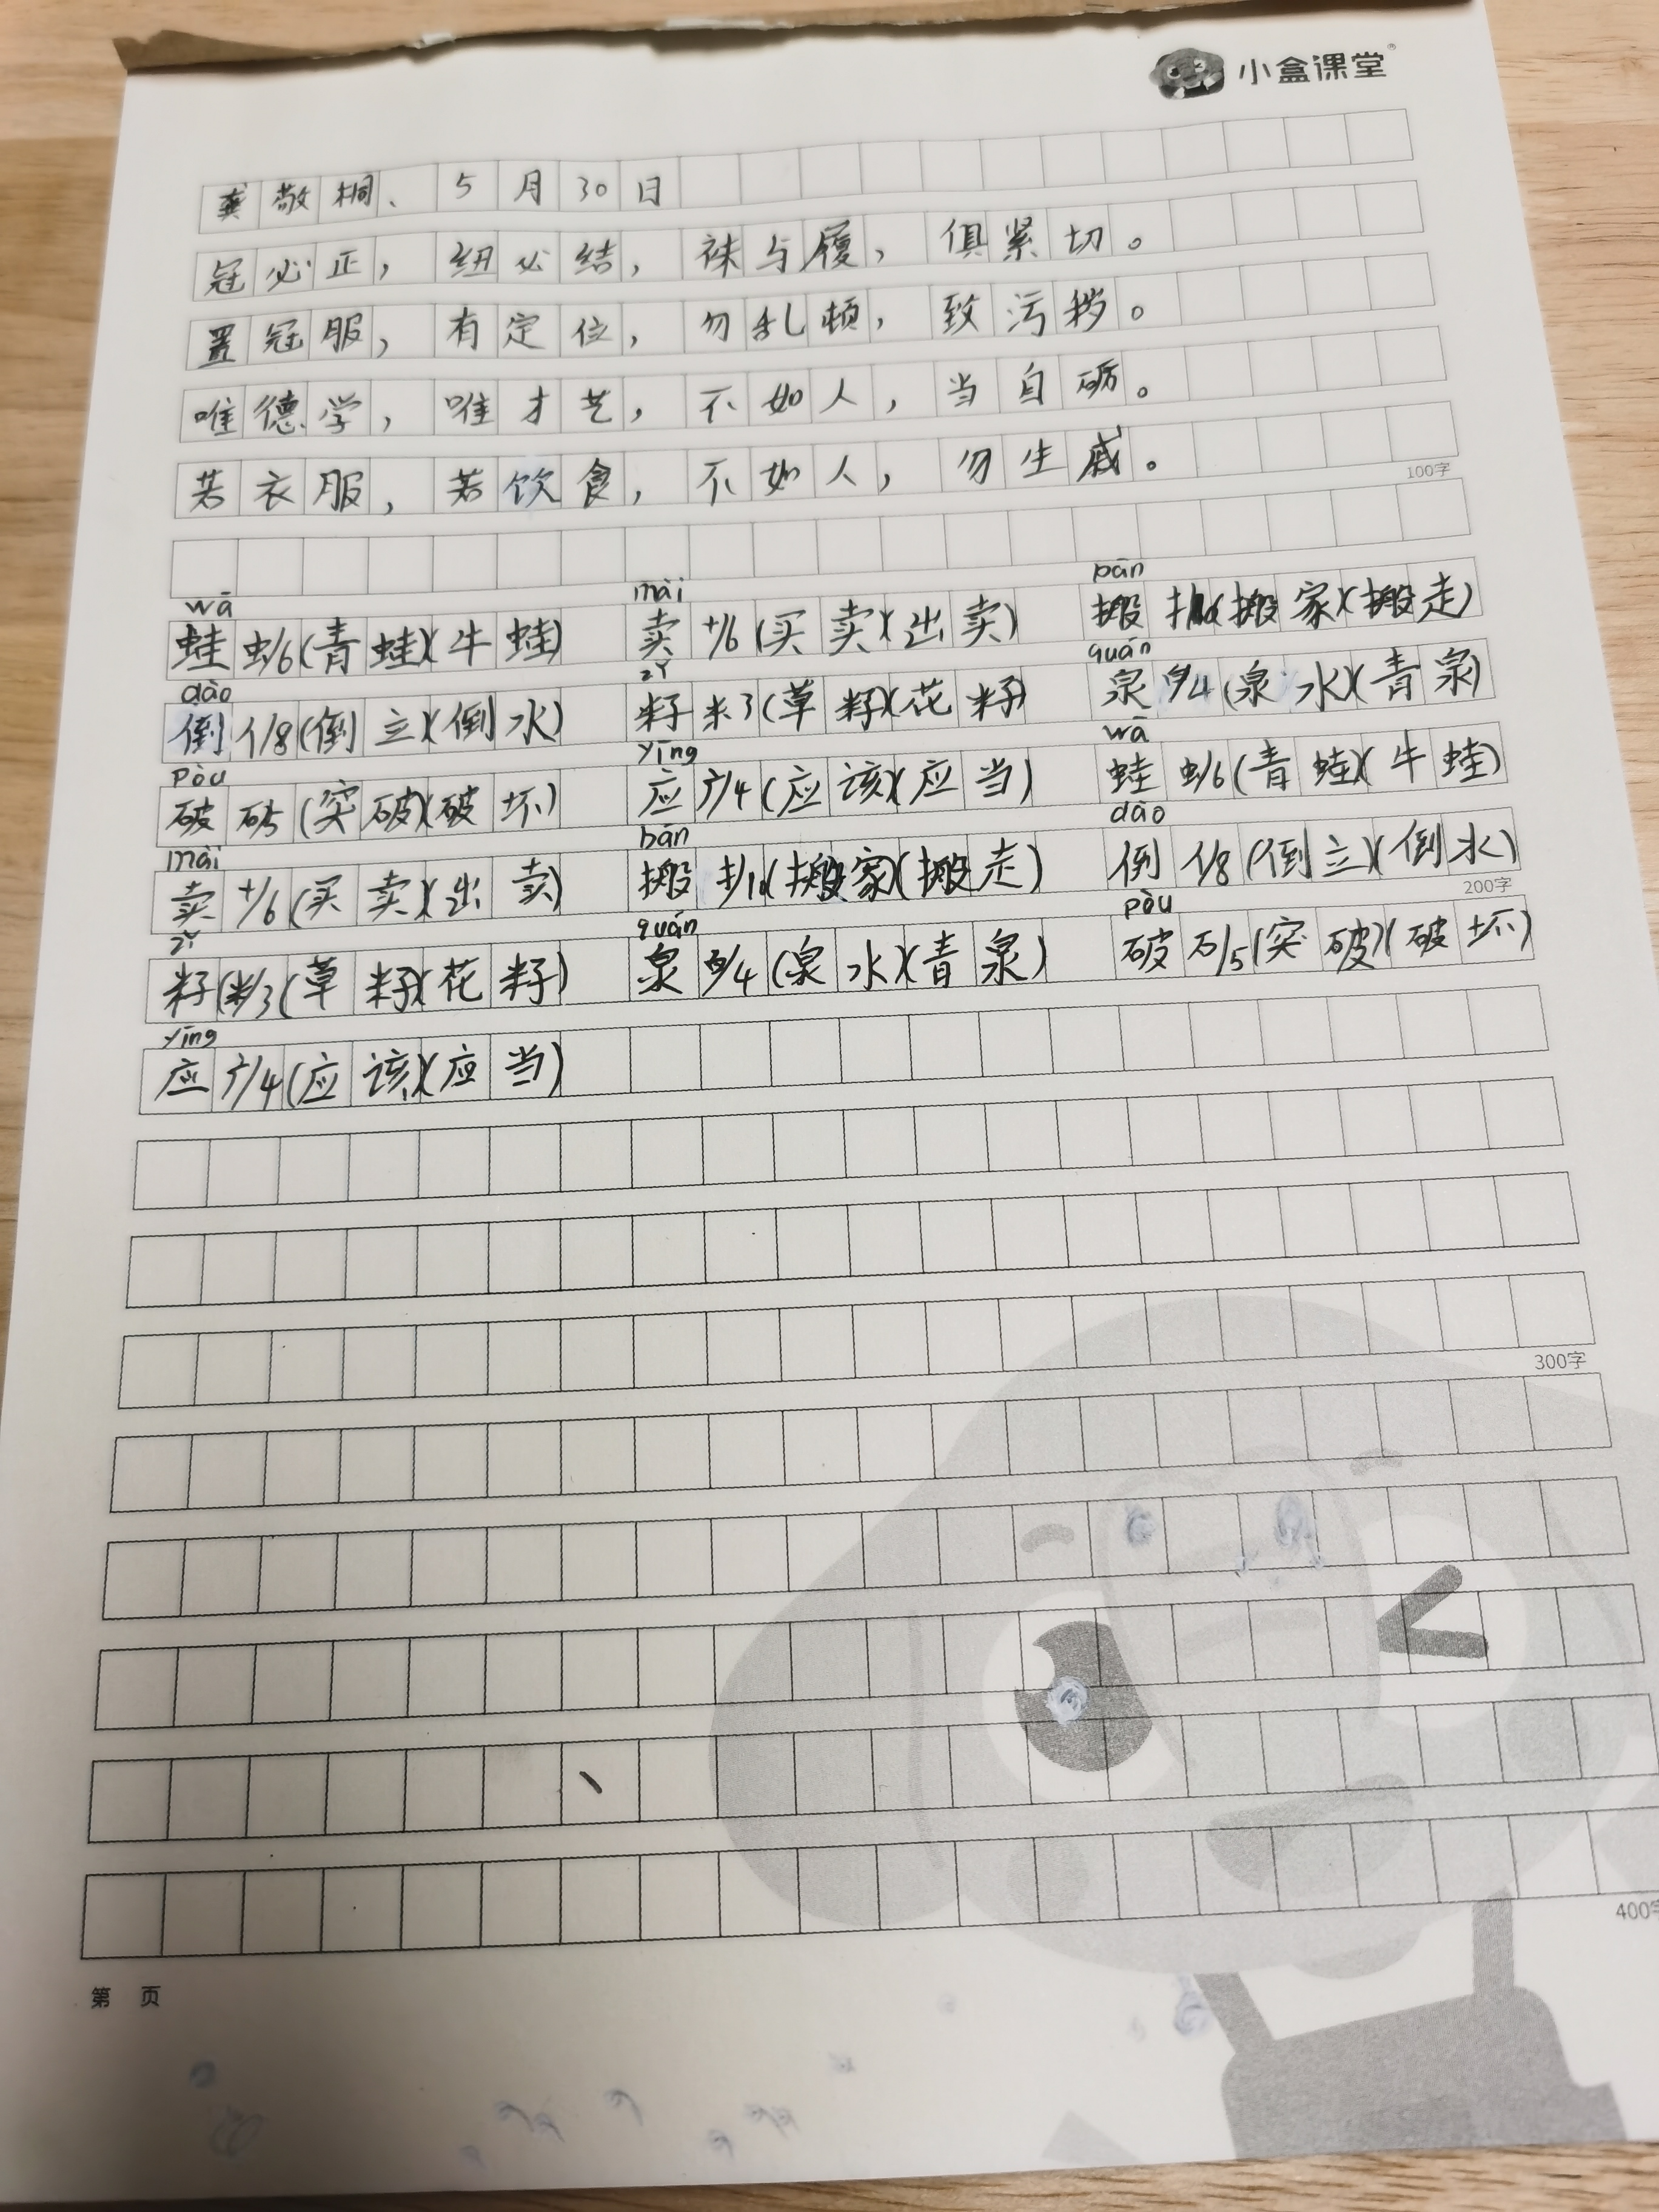 小盒课堂
龚敬桐、5月30日
冠必正，纽必结，袜与履，俱紧切。
置冠服，有定位，勿乱顿，致污秽。
唯德学，唯才艺，不如人，当自砺。
若衣服，若饮食，不如人，勿生戚。
100字
wā mài bān
蛙 虫/6(青蛙)(牛蛙) 卖 十/6(买卖)(出卖) 搬 (搬家)(搬走)
dào zǐ quán
倒 亻/8(倒立)(倒水) 籽 米3(草籽)(花籽) 泉 白/4(泉水)(青泉)
pòu yīng wā
破 石5(突破)(破坏) 应 广/4(应该)(应当) 蛙 虫/6(青蛙)(牛蛙)
mài bān dào
卖 十/6(买卖)(出卖) 搬 扌/10(搬家)(搬走) 倒 亻/8(倒立)(倒水)
200字
zǐ quán pòu
籽(米/3(草籽)(花籽) 泉 白/4(泉水)(青泉) 破 石/5(突破)(破坏)
yīng
应 广/4(应该)(应当)
300字
400字
第 页